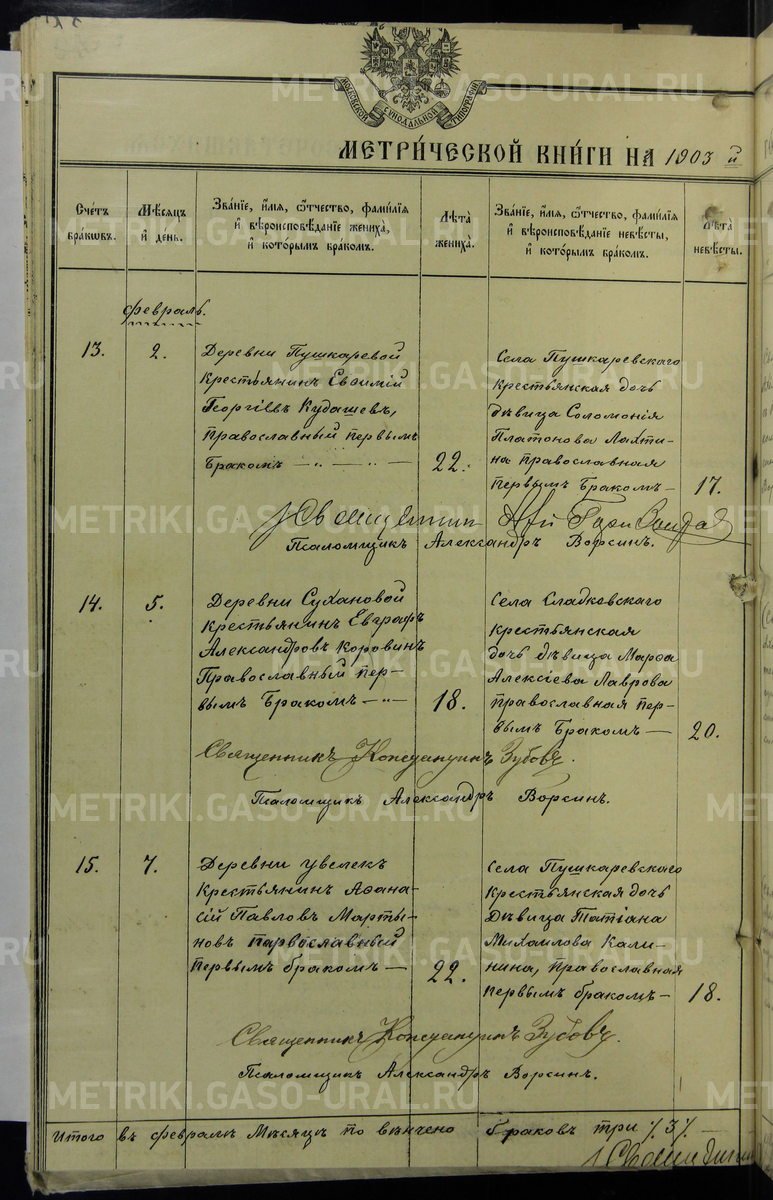 МОСКОВСКОЙ СѴНОДАЛЬНОЙ ТИПОГРАФІИ
МЕТРИ́ЧЕСКОЙ КНИ́ГИ НА 1903 й
Сче́тъ бра́кωвъ.
Мѣ́сяцъ и҆ де́нь.
Зва́нїе, и҆́мѧ, ѻ҆́тчество, фами́лїѧ
и҆ вѣроисповѣ́данїе жениха̀,
и҆ кото́рымъ бра́комъ.
Лѣ́та жениха̀.
Зва́нїе, и҆́мѧ, ѻ҆́тчество, фами́лїѧ
и҆ вѣроисповѣ́данїе невѣ́сты,
и҆ кото́рымъ бра́комъ.
Лѣ́та невѣ́сты.
февраль.
13.
2.
Деревни Пушкаревой
крестьянинъ Евѳимій
Георгіевъ Кудашевъ,
православный первымъ
бракомъ
22.
Села Пушкаревскаго
крестьянская дочь
дѣвица Соломонія
Платонова Лахти-
на православная
первымъ бракомъ
17.
Священник
Псаломщикъ Александръ Ворсинъ.
14.
5.
Деревни Сухановой
крестьянинъ Евграфъ
Александровъ Коровинъ
Православный пер-
вымъ бракомъ
18.
Села Сладковскаго
крестьянская
дочь дѣвица Марѳа
Алексіева Лаврова
православная пер-
вымъ бракомъ
20.
Священникъ Константинъ Зубовъ.
Псаломщикъ Александръ Ворсинъ.
15.
7.
Деревни Увелекъ
крестьянинъ Аѳана-
сій Павловъ Марты-
новъ парвославный
первымъ бракомъ
22.
Села Пушкаревскаго
крестьянская дочь
дѣвица Татіана
Михаилова Кали-
нина, православная
первымъ бракомъ
18.
Священникъ Константинъ Зубовъ.
Псаломщикъ Александръ Ворсинъ.
Итого въ февралѣ Мѣсяцѣ по вѣнчено браковъ три /. 3 /.
Священник
METRIKI.GASO-URAL.RU